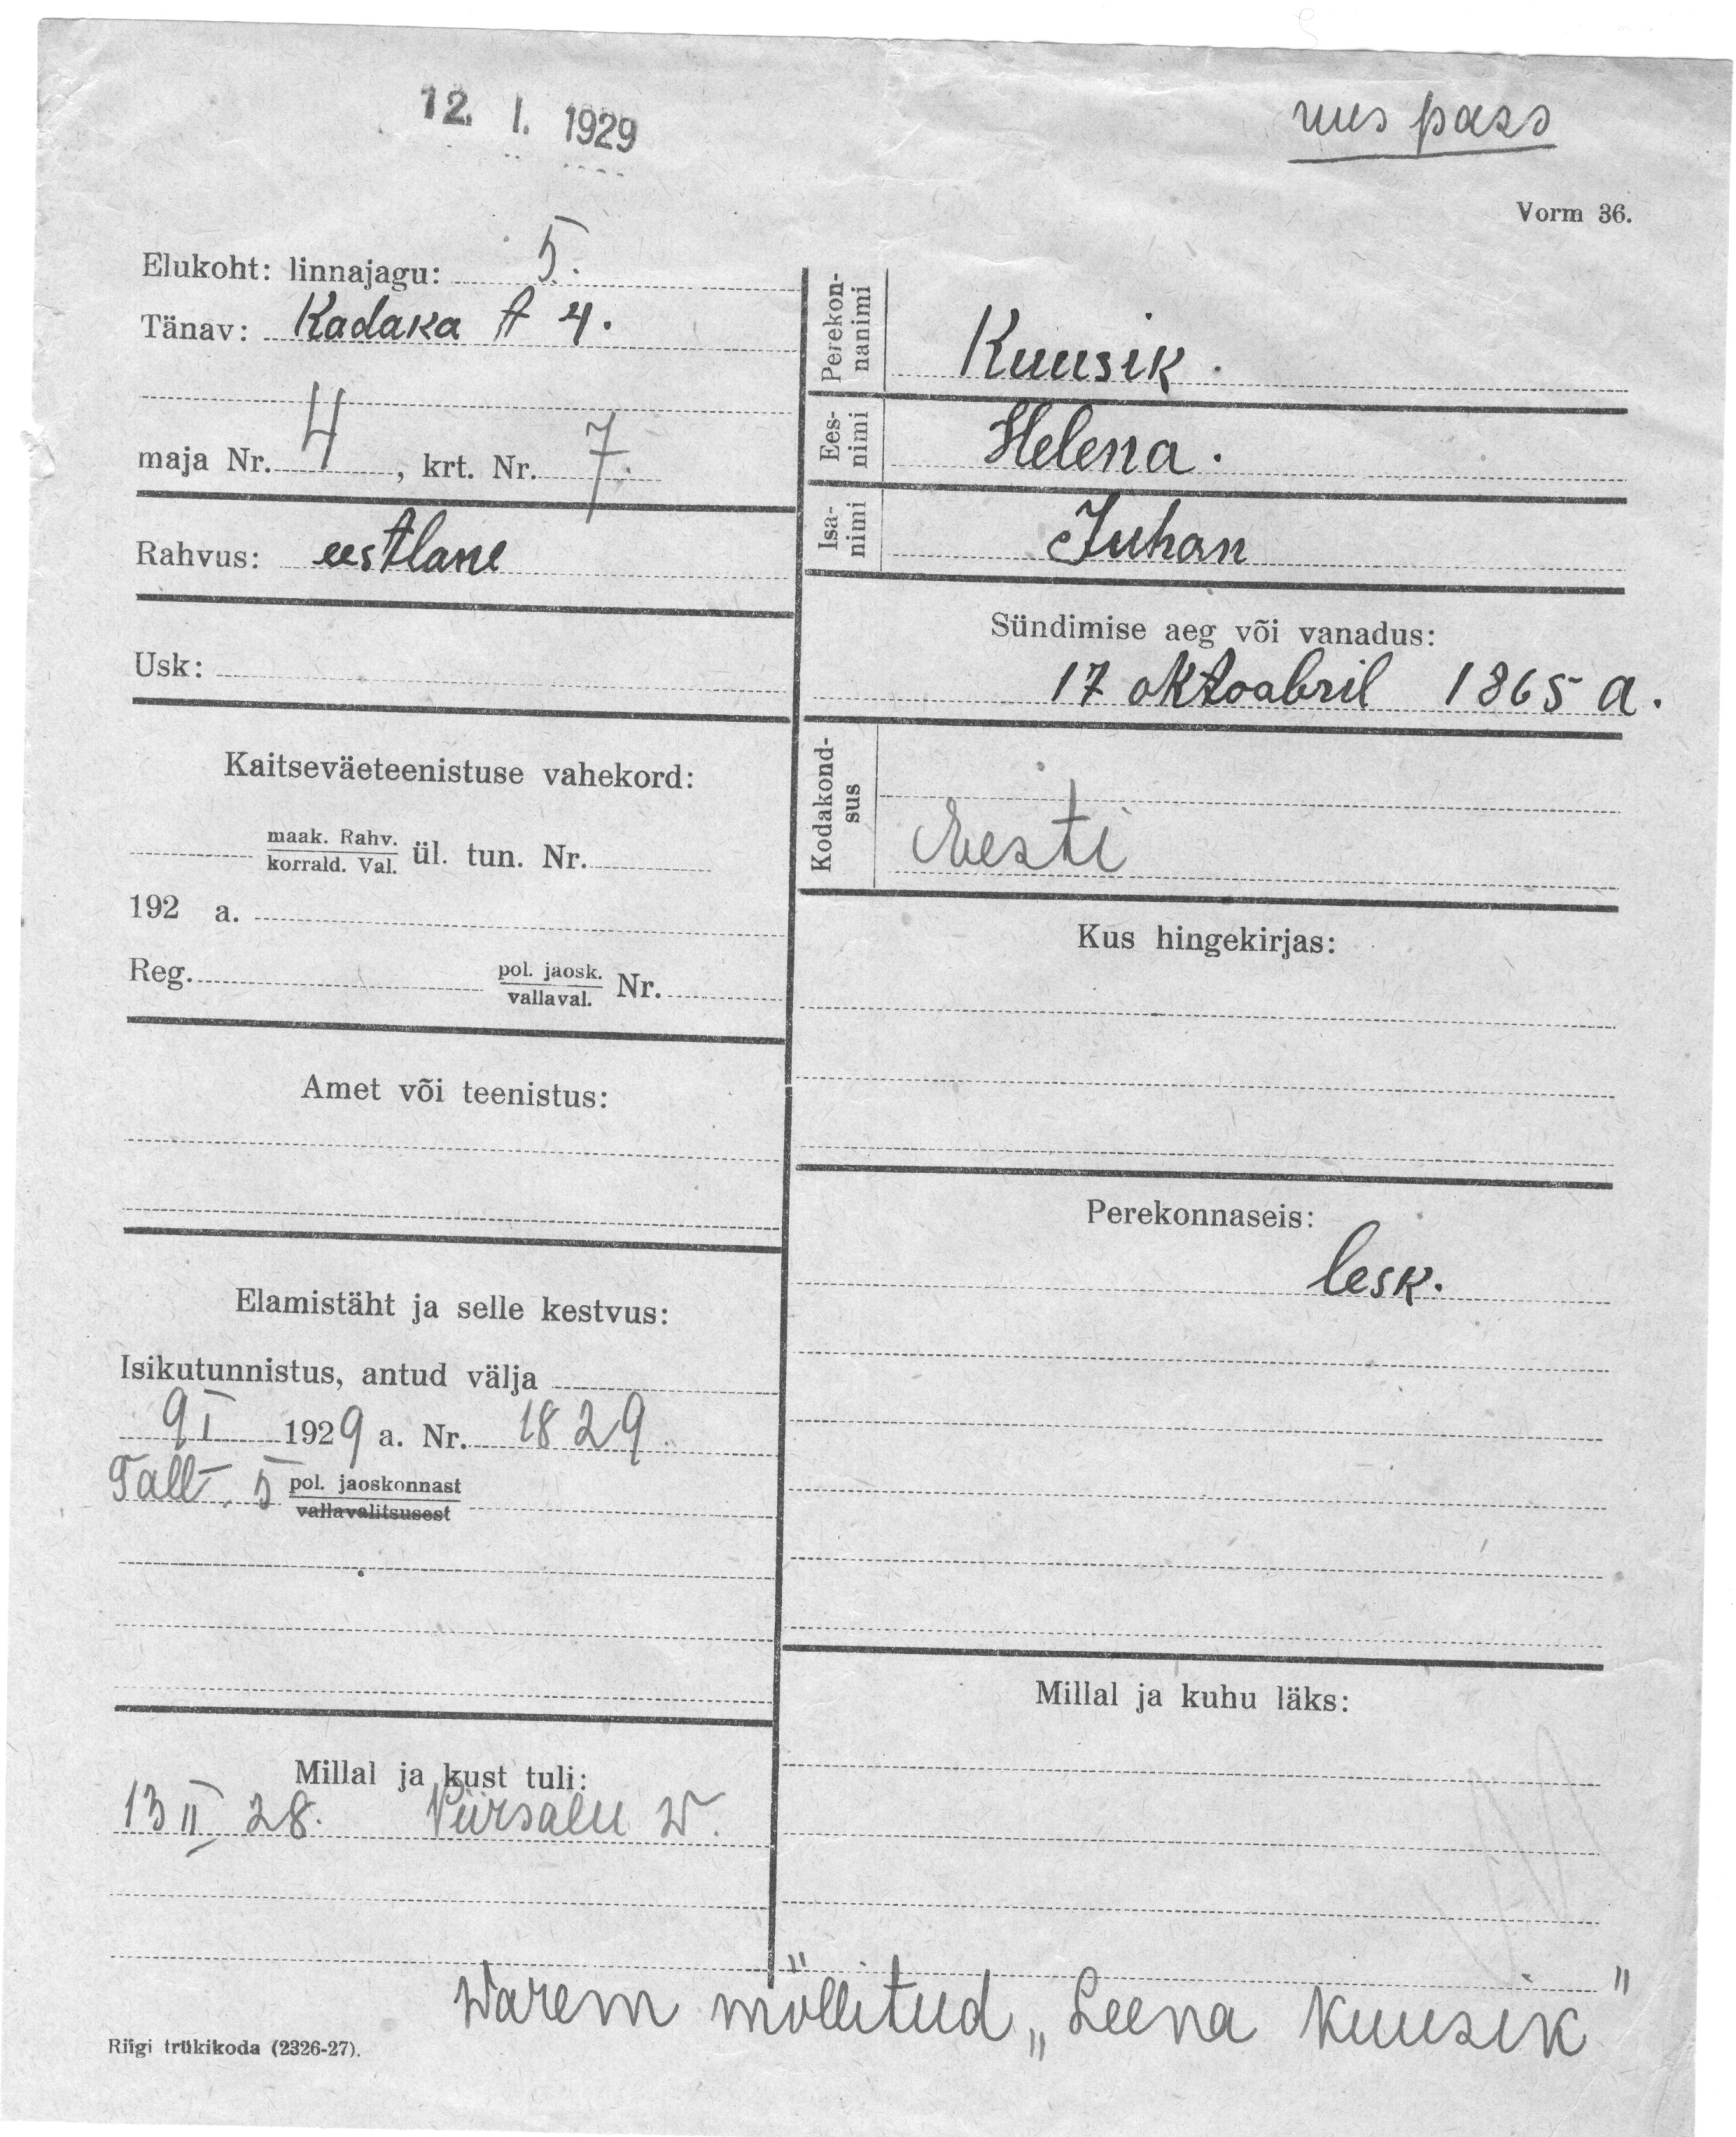 12. I. 1929
uus pass
Vorm 36.
Elukoht: linnajagu: 5.
Tänav: Kadaka t 4.
maja Nr. 4, krt. Nr. 7.
Rahvus: eestlane
Usk:
Kaitseväeteenistuse vahekord:
maak. Rahv.
korrald. Val. ül. tun. Nr.
192 a.
Reg. pol. jaosk.
vallaval. Nr.
Amet või teenistus:
Elamistäht ja selle kestvus:
Isikutunnistus, antud välja
9 I 1929 a. Nr. 1829
Tall. 5 pol. jaoskonnast
vallavalitsusest
Millal ja kust tuli:
13 II 28. Piirsalu w.
Perekon-
nanimi
Kuusik.
Ees-
nimi
Helena.
Isa-
nimi
Juhan
Sündimise aeg või vanadus:
17 oktoabril 1865 a.
Kodakond-
sus
Eesti
Kus hingekirjas:
Perekonnaseis:
lesk.
Millal ja kuhu läks:
Warem möllitud „Leena Kuusik"
Riigi trükikoda (2326-27).